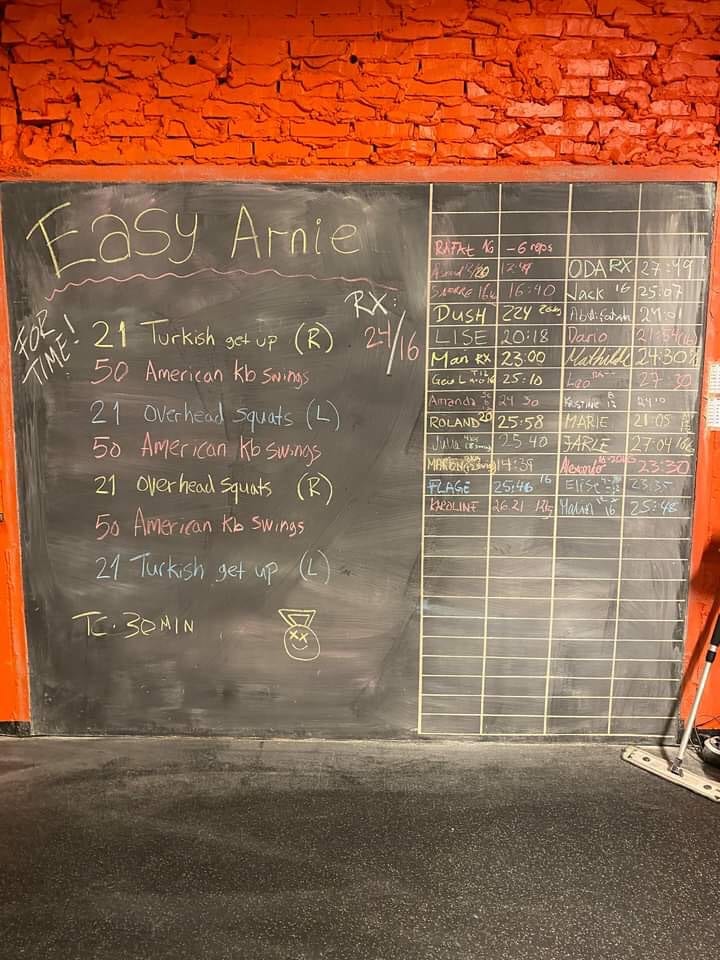 Easy Arnie
FOR TIME!
RX:
24/16
21 Turkish get up (R)
50 American Kb swings
21 Overhead Squats (L)
50 American Kb swings
21 Overhead Squats (R)
50 American Kb swings
21 Turkish get up (L)
TC. 30 MIN
RAFAL 16 -6 reps
ODA RX 27:49
16:40 Jack 16 25:07
DUSH
LISE 20:18 Dario
Man RX 23:00 Mathilde 24:30
25:10 Leo 27:30
Amanda 24 30 Kristine 12
ROLAND 20 25:58 MARIE 21:05
Julia 25.40 JARLE 27:04
14:39 23:30
FLAGE 25:46 16 Elise 23:35
KAROLINE 26.21 16 25:48